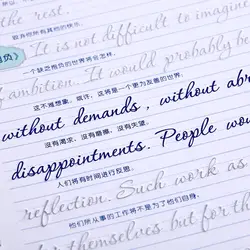 the rest.
致弃你所有其他的快乐。
It is not difficult to imagine
一个缺乏抱负的世界将会怎样。
ambition. It would probably be
这不难想象。或许，这将是一个更为友善的世界。
without demands, without abr
没有渴求，没有磨擦，没有失望。
disappointments. People wou
人们将有时间进行反思。
reflection. Such work as
他们所从事的工作将不是为了他们自身，
themselves but for th